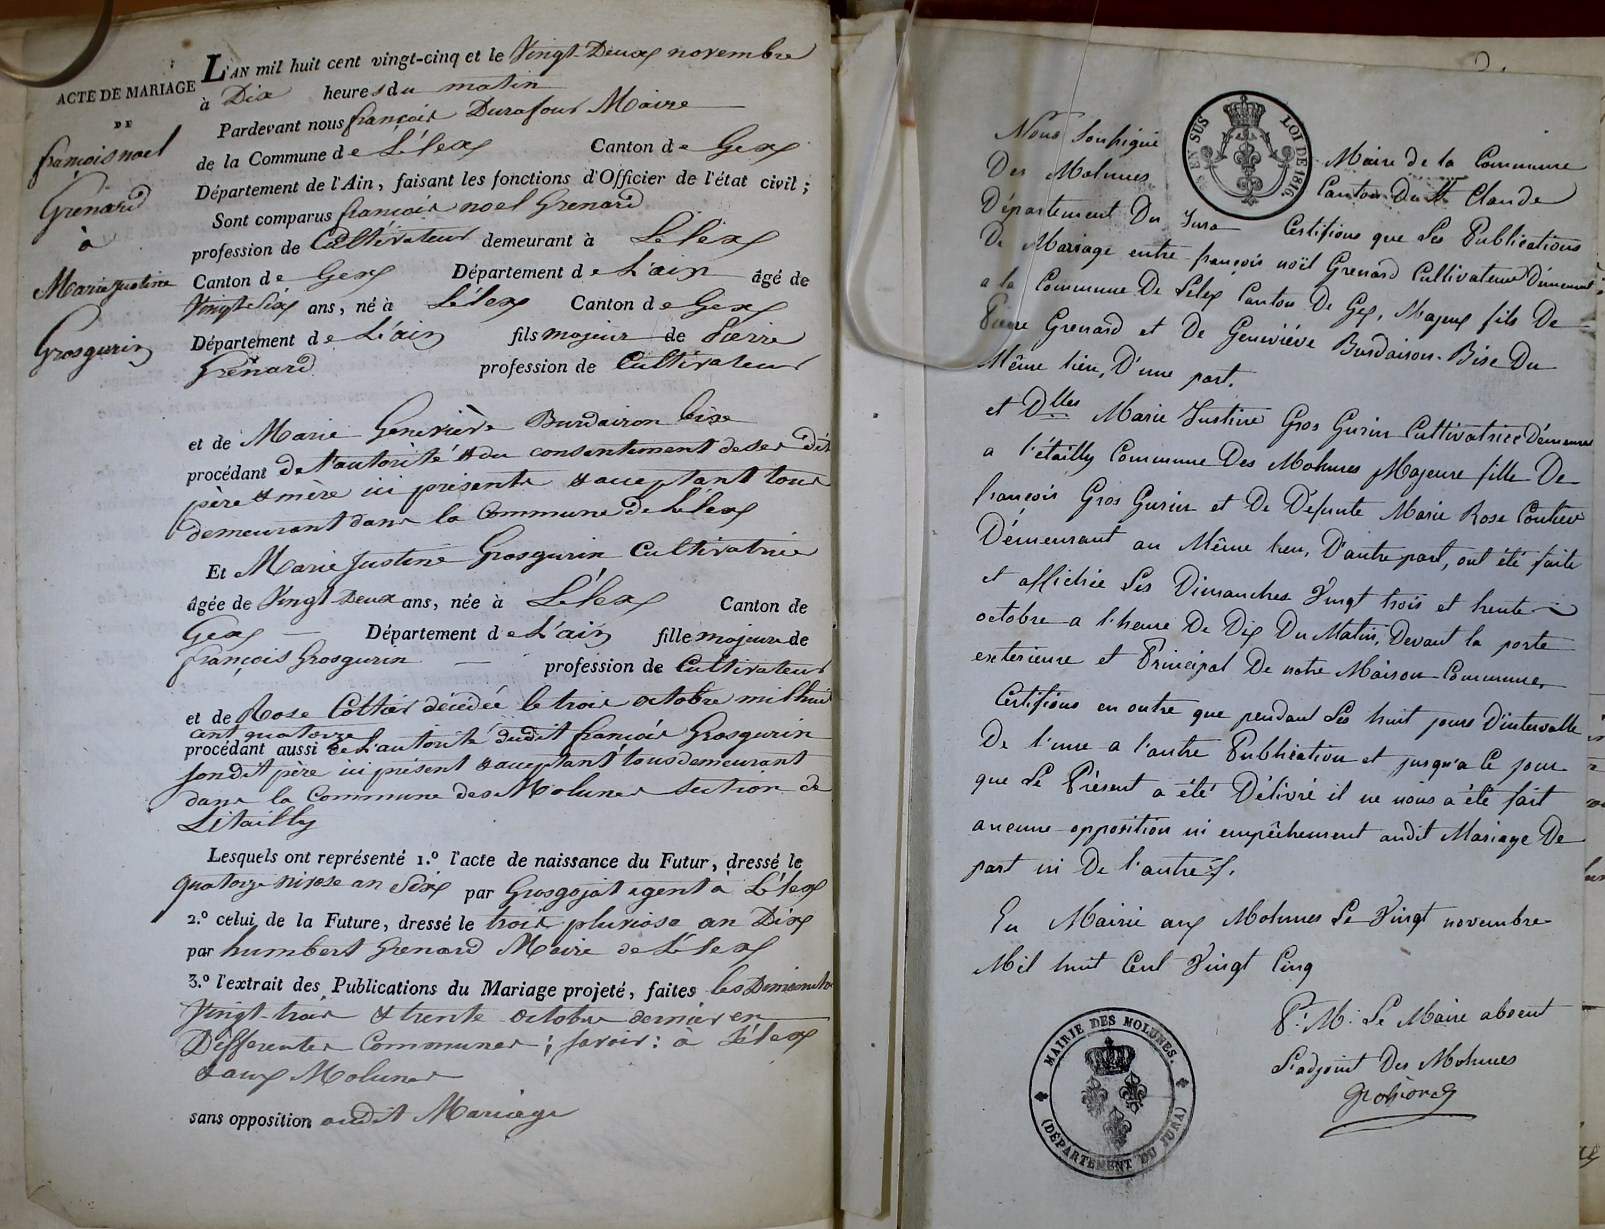 ACTE DE MARIAGE
DE
françois noel
Grenard
à
Marie Justine
Grosgurin
L'AN mil huit cent vingt-cinq et le Vingt-Deux novembre
à Dix heures du matin
Pardevant nous françois Durafour Maire
de la Commune de Lélex Canton de Gex
Département de l'Ain, faisant les fonctions d'Officier de l'état civil ;
Sont comparus françois noel Grenard
profession de Cultivateur demeurant à Lélex
Canton de Gex Département de L'ain âgé de
Vingt Six ans, né à Lélex Canton de Gex
Département de L'ain fils majeur de Pierre
Grenard profession de Cultivateur
et de Marie Genevière Burdairon bise
procédant de l'autorité & du consentement de ses dits
père & mère ici présents & acceptant tous
demeurant dans la Commune de Lélex
Et Marie Justine Grosgurin Cultivatrice
âgée de Vingt Deux ans, née à Lélex Canton de
Gex Département de L'ain fille majeure de
françois Grosgurin profession de Cultivateur
et de Rose Cottier décédée le trois octobre mil huit
cent quatorze
procédant aussi de L'autorité dudit françois Grosgurin
son dit père ici présent & acceptant tous demeurant
dans la Commune des Molunes Section de
Litailly
Lesquels ont représenté 1.º l'acte de naissance du Futur, dressé le
quatorze nivose an Sept par Grosgojat agent à Lélex
2.º celui de la Future, dressé le trois pluviose an Dix
par humbert Grenard Maire de Lélex
3.º l'extrait des Publications du Mariage projeté, faites les Dimanches
Vingt-trois & trente octobre dernier en
Differentes Communes ; savoir : à Lélex
& aux Molunes
sans opposition audit Mariage
EN SUS LOI DE 1816
Nous Soussigné Maire de la Commune
Des Molunes Canton De St Claude
Département Du Jura Certifions que Les Publications
De Mariage entre françois noël Grenard Cultivateur Démeurant
a la Commune De Lelex Canton De Gex, Majeur fils De
Pierre Grenard et De Geneviéve Burdairon-Bise Du
Même lieu, D'une part.
et Dlles Marie Justine Gros Gurin Cultivatrice Démeurant
a l'étailly Commune Des Molunes Majeure fille De
françois Gros Gurin et De Défunte Marie Rose Coutier
Démeurant au Même lieu, D'autre part, ont été faite
et affichée Les Dimanches Vingt trois et trente
octobre a l'heure De Dix Du Matin, Devant la porte
exterieure et Principal De notre Maison Commune,
Certifions en outre que pendant Les huit jours D'intervalle
De l'une a l'autre Publication et jusqu'a Ce jour
que Le Présent a été Délivré il ne nous a été fait
aucune opposition ni empêchement audit Mariage De
part ni De l'autre.
En Mairie aux Molunes Le Vingt novembre
Mil huit Cent Vingt Cinq
Pr. M. Le Maire absent
L'adjoint Des Molunes
MAIRIE DES MOLUNES.
(DÉPARTEMENT DU JURA)